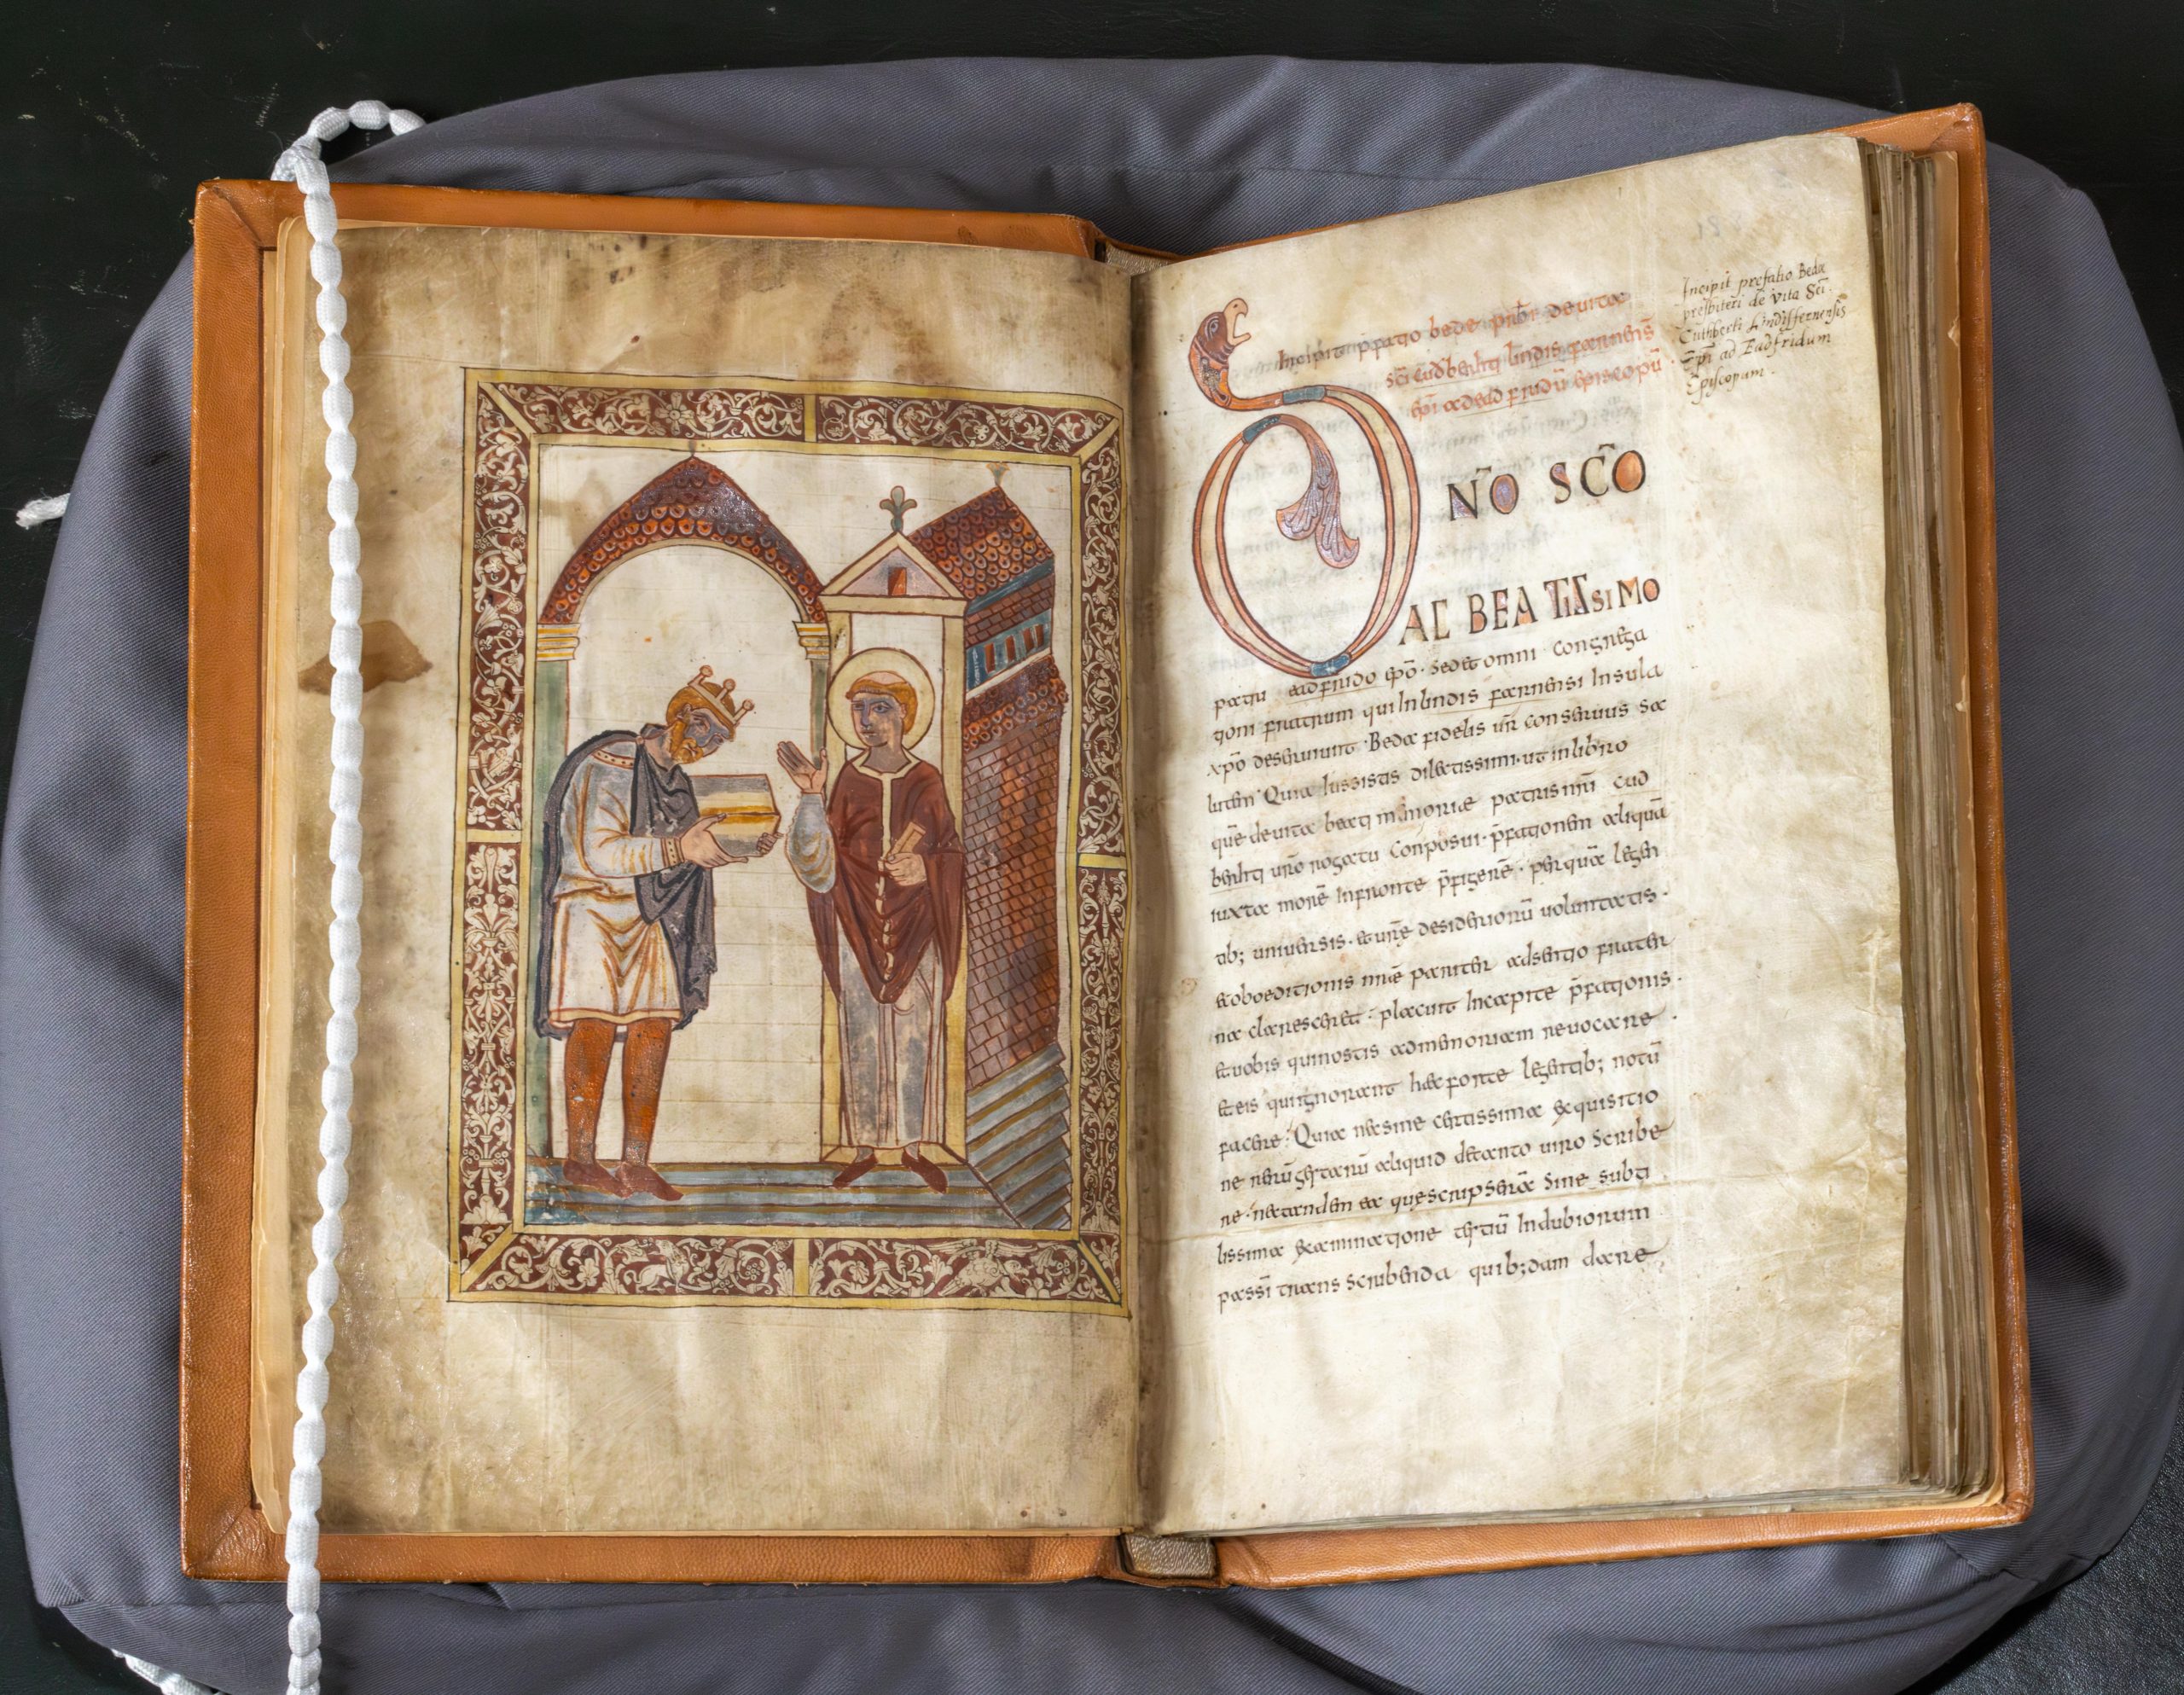 Incipit p̄fatio bede p̄sbr̄ de uita
sc̄i cudberhti lindisfarnensis
ep̄i ad eadfridū episcopū
Incipit prefatio Bedæ
presbiteri de vita Sc̄i
Cuthberti Lindisfernensis
Ep̄i ad Eadfridum
Episcopum.
DN̄O SC̄O
AC BEATISSIMO
patri eadfrido ep̄o. sed et omni congrega
tioni fratrum qui In lindisfarnensi Insula
xp̄o deseruiunt. Beda fidelis ur̄ conseruus sa
lutem. Quia Iussistis dilectissimi. ut in libro
quē de uita beati memoriæ patris nr̄i cud
berhti ur̄o rogatu conposui. p̄fationem aliquā
iuxta morē Infronte p̄figerē. per quā legen
tib; uniuersis. et ur̄ę desideriorū uoluntatis.
et oboeditionis meę pariter adsensio frater
na claresceret. placuit In capite p̄fationis.
et uobis qui nostis ad memoriam reuocare.
et eis qui ignorant hæc forte legentib; notū
facere. Quia nec sine certissima exquisitio
ne rerū gestarū aliquid de tanto uiro scribe
re. nec tandem ea quę scripserā sine subti
lissima examinatione testiū Indubiorum
passī transscribenda quib;dam dare